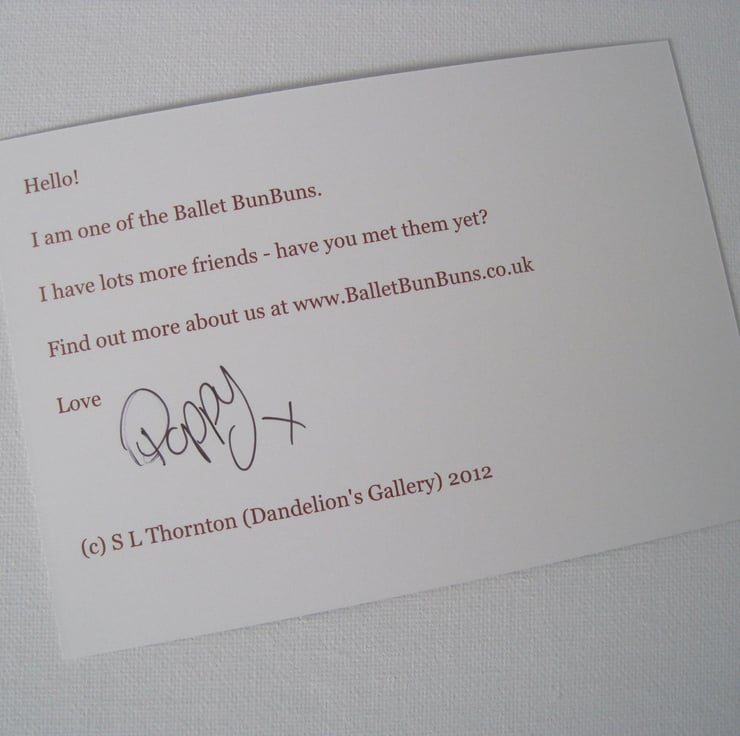 Hello!
I am one of the Ballet BunBuns.
I have lots more friends - have you met them yet?
Find out more about us at www.BalletBunBuns.co.uk
Love Poppy x
(c) S L Thornton (Dandelion's Gallery) 2012